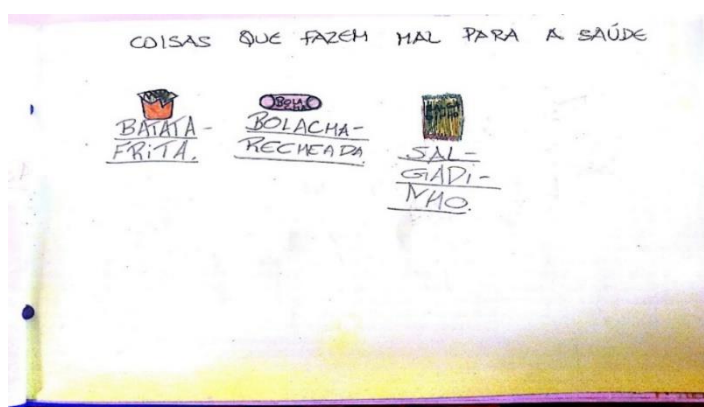 COISAS QUE FAZEM MAL PARA A SAÚDE
BOLACHA
BATATA-
FRITA.
BOLACHA-
RECHEADA
SAL-
GADI-
NHO.